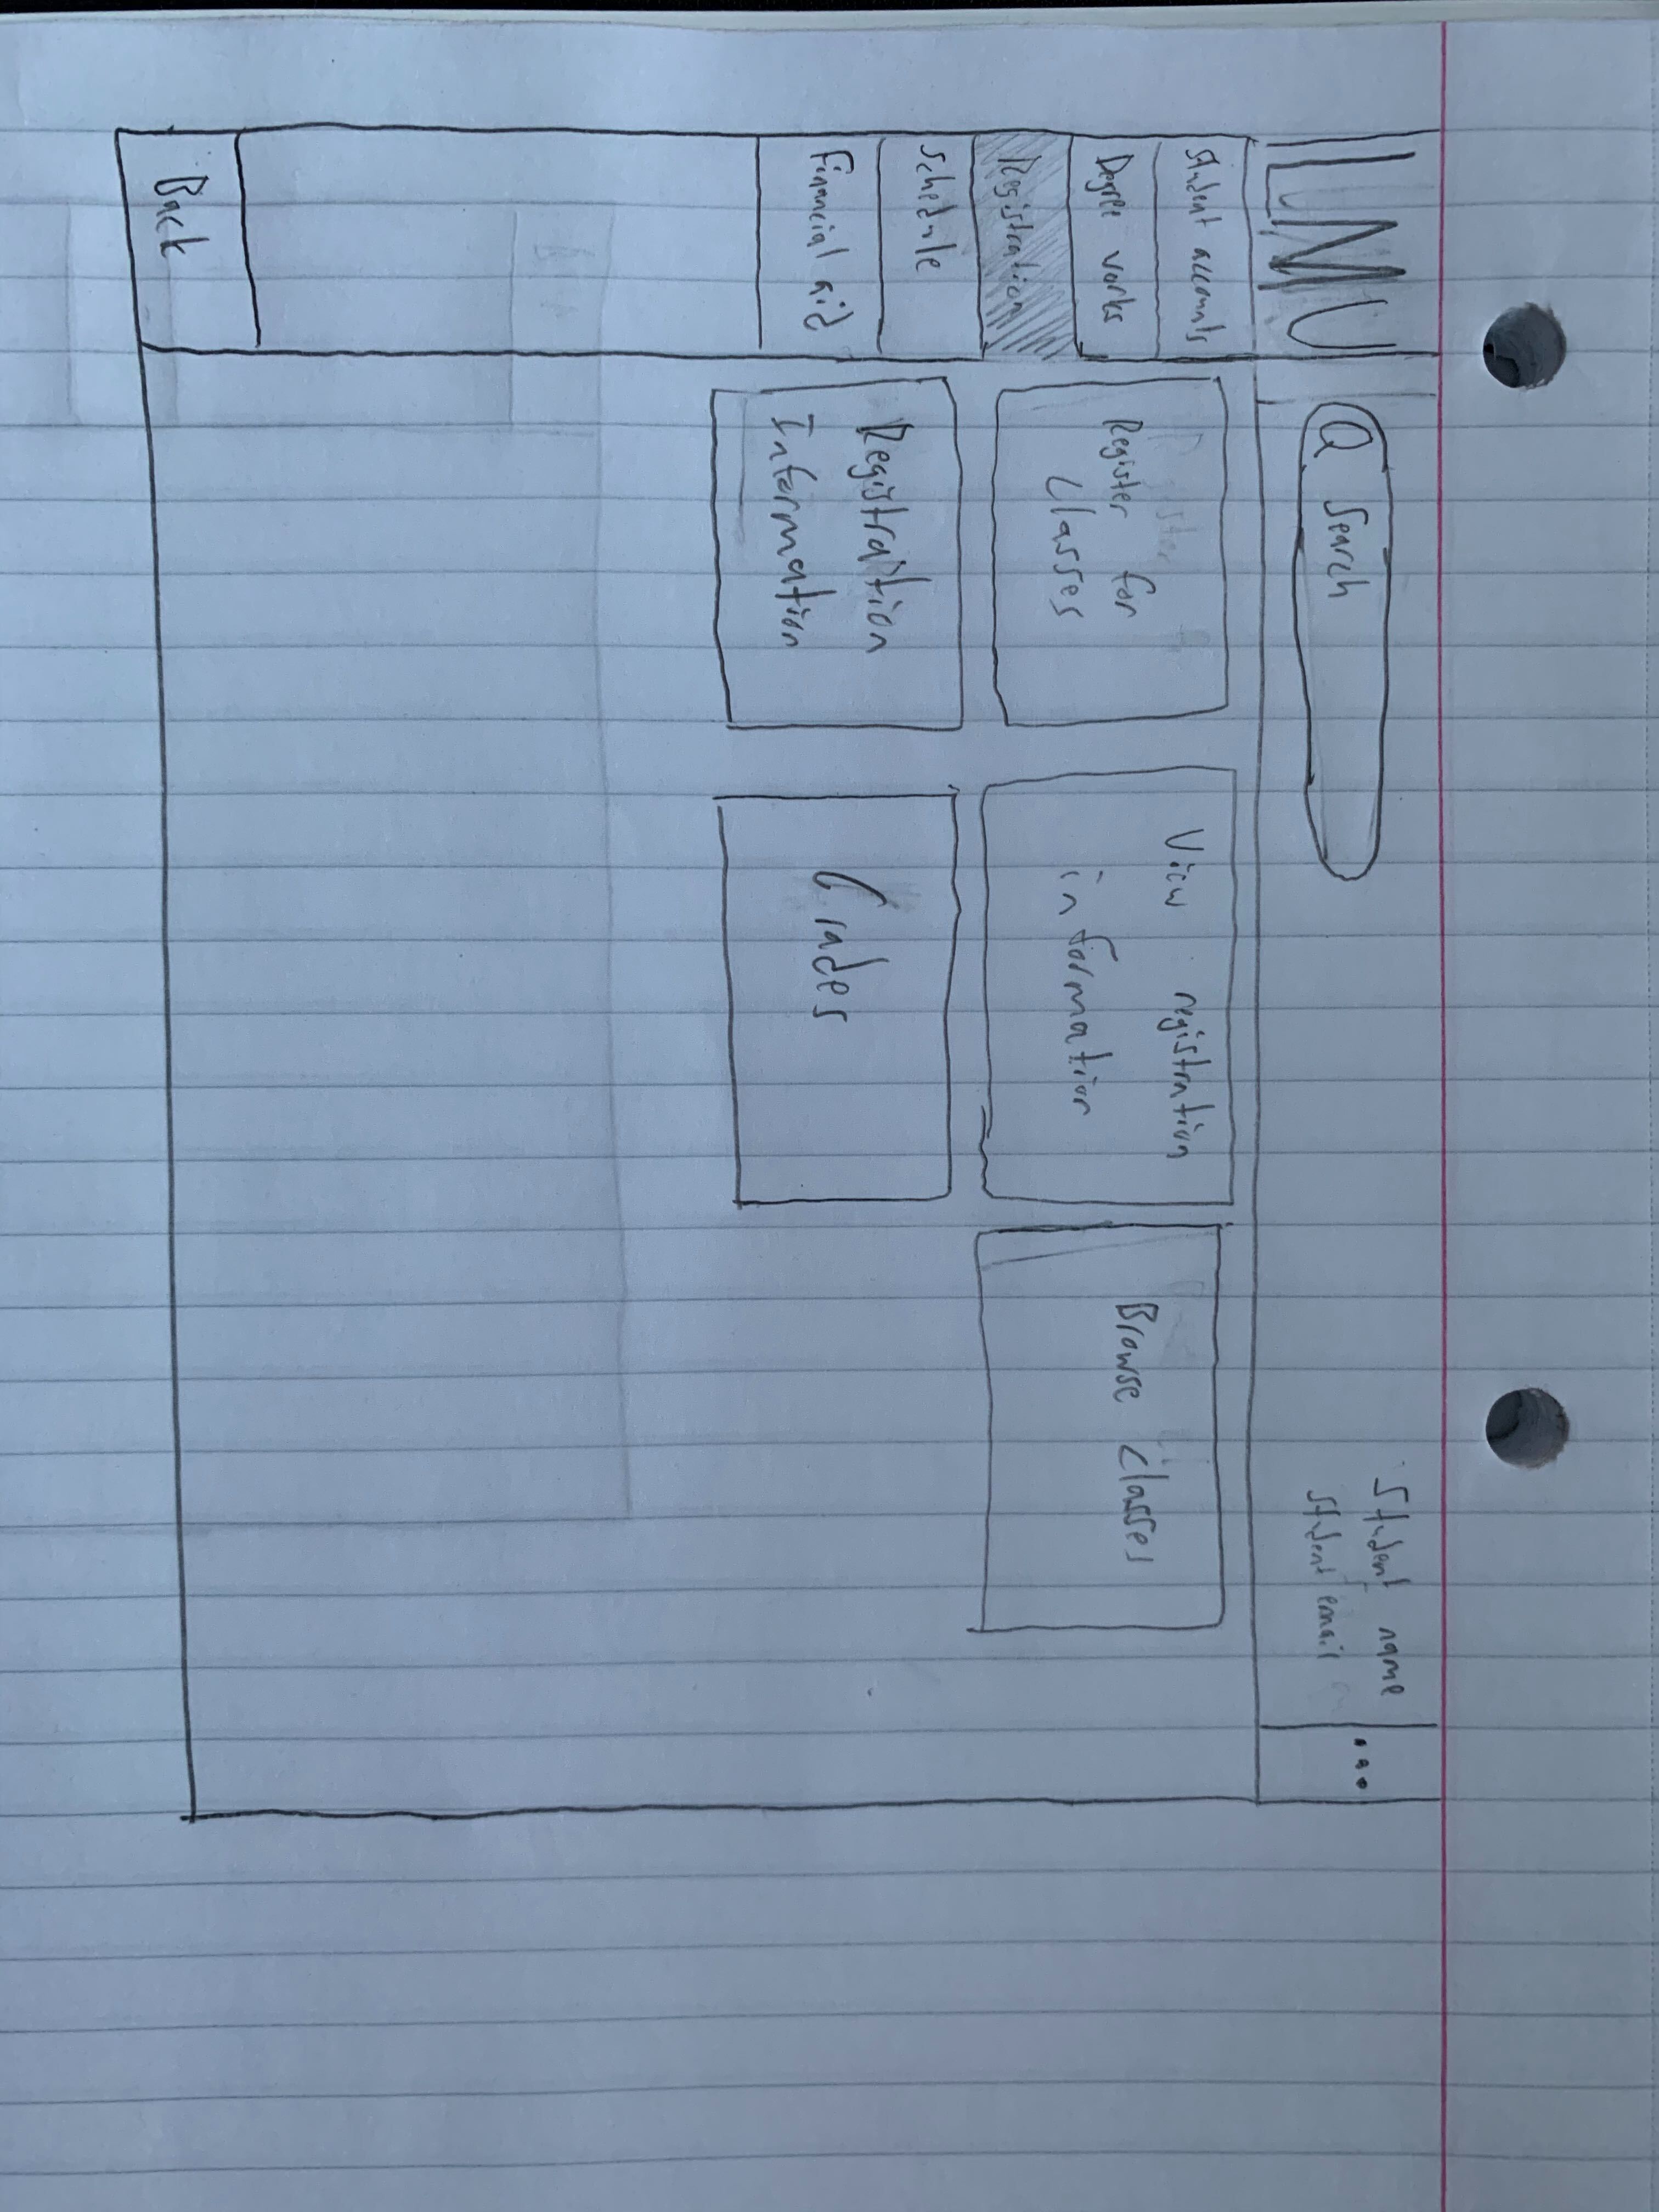 LMU
Search
Student name
Student email
...
Student accounts
Degree works
Registration
Schedule
Financial aid
Back
Register for
classes
View registration
information
Browse classes
Registration
Information
Grades